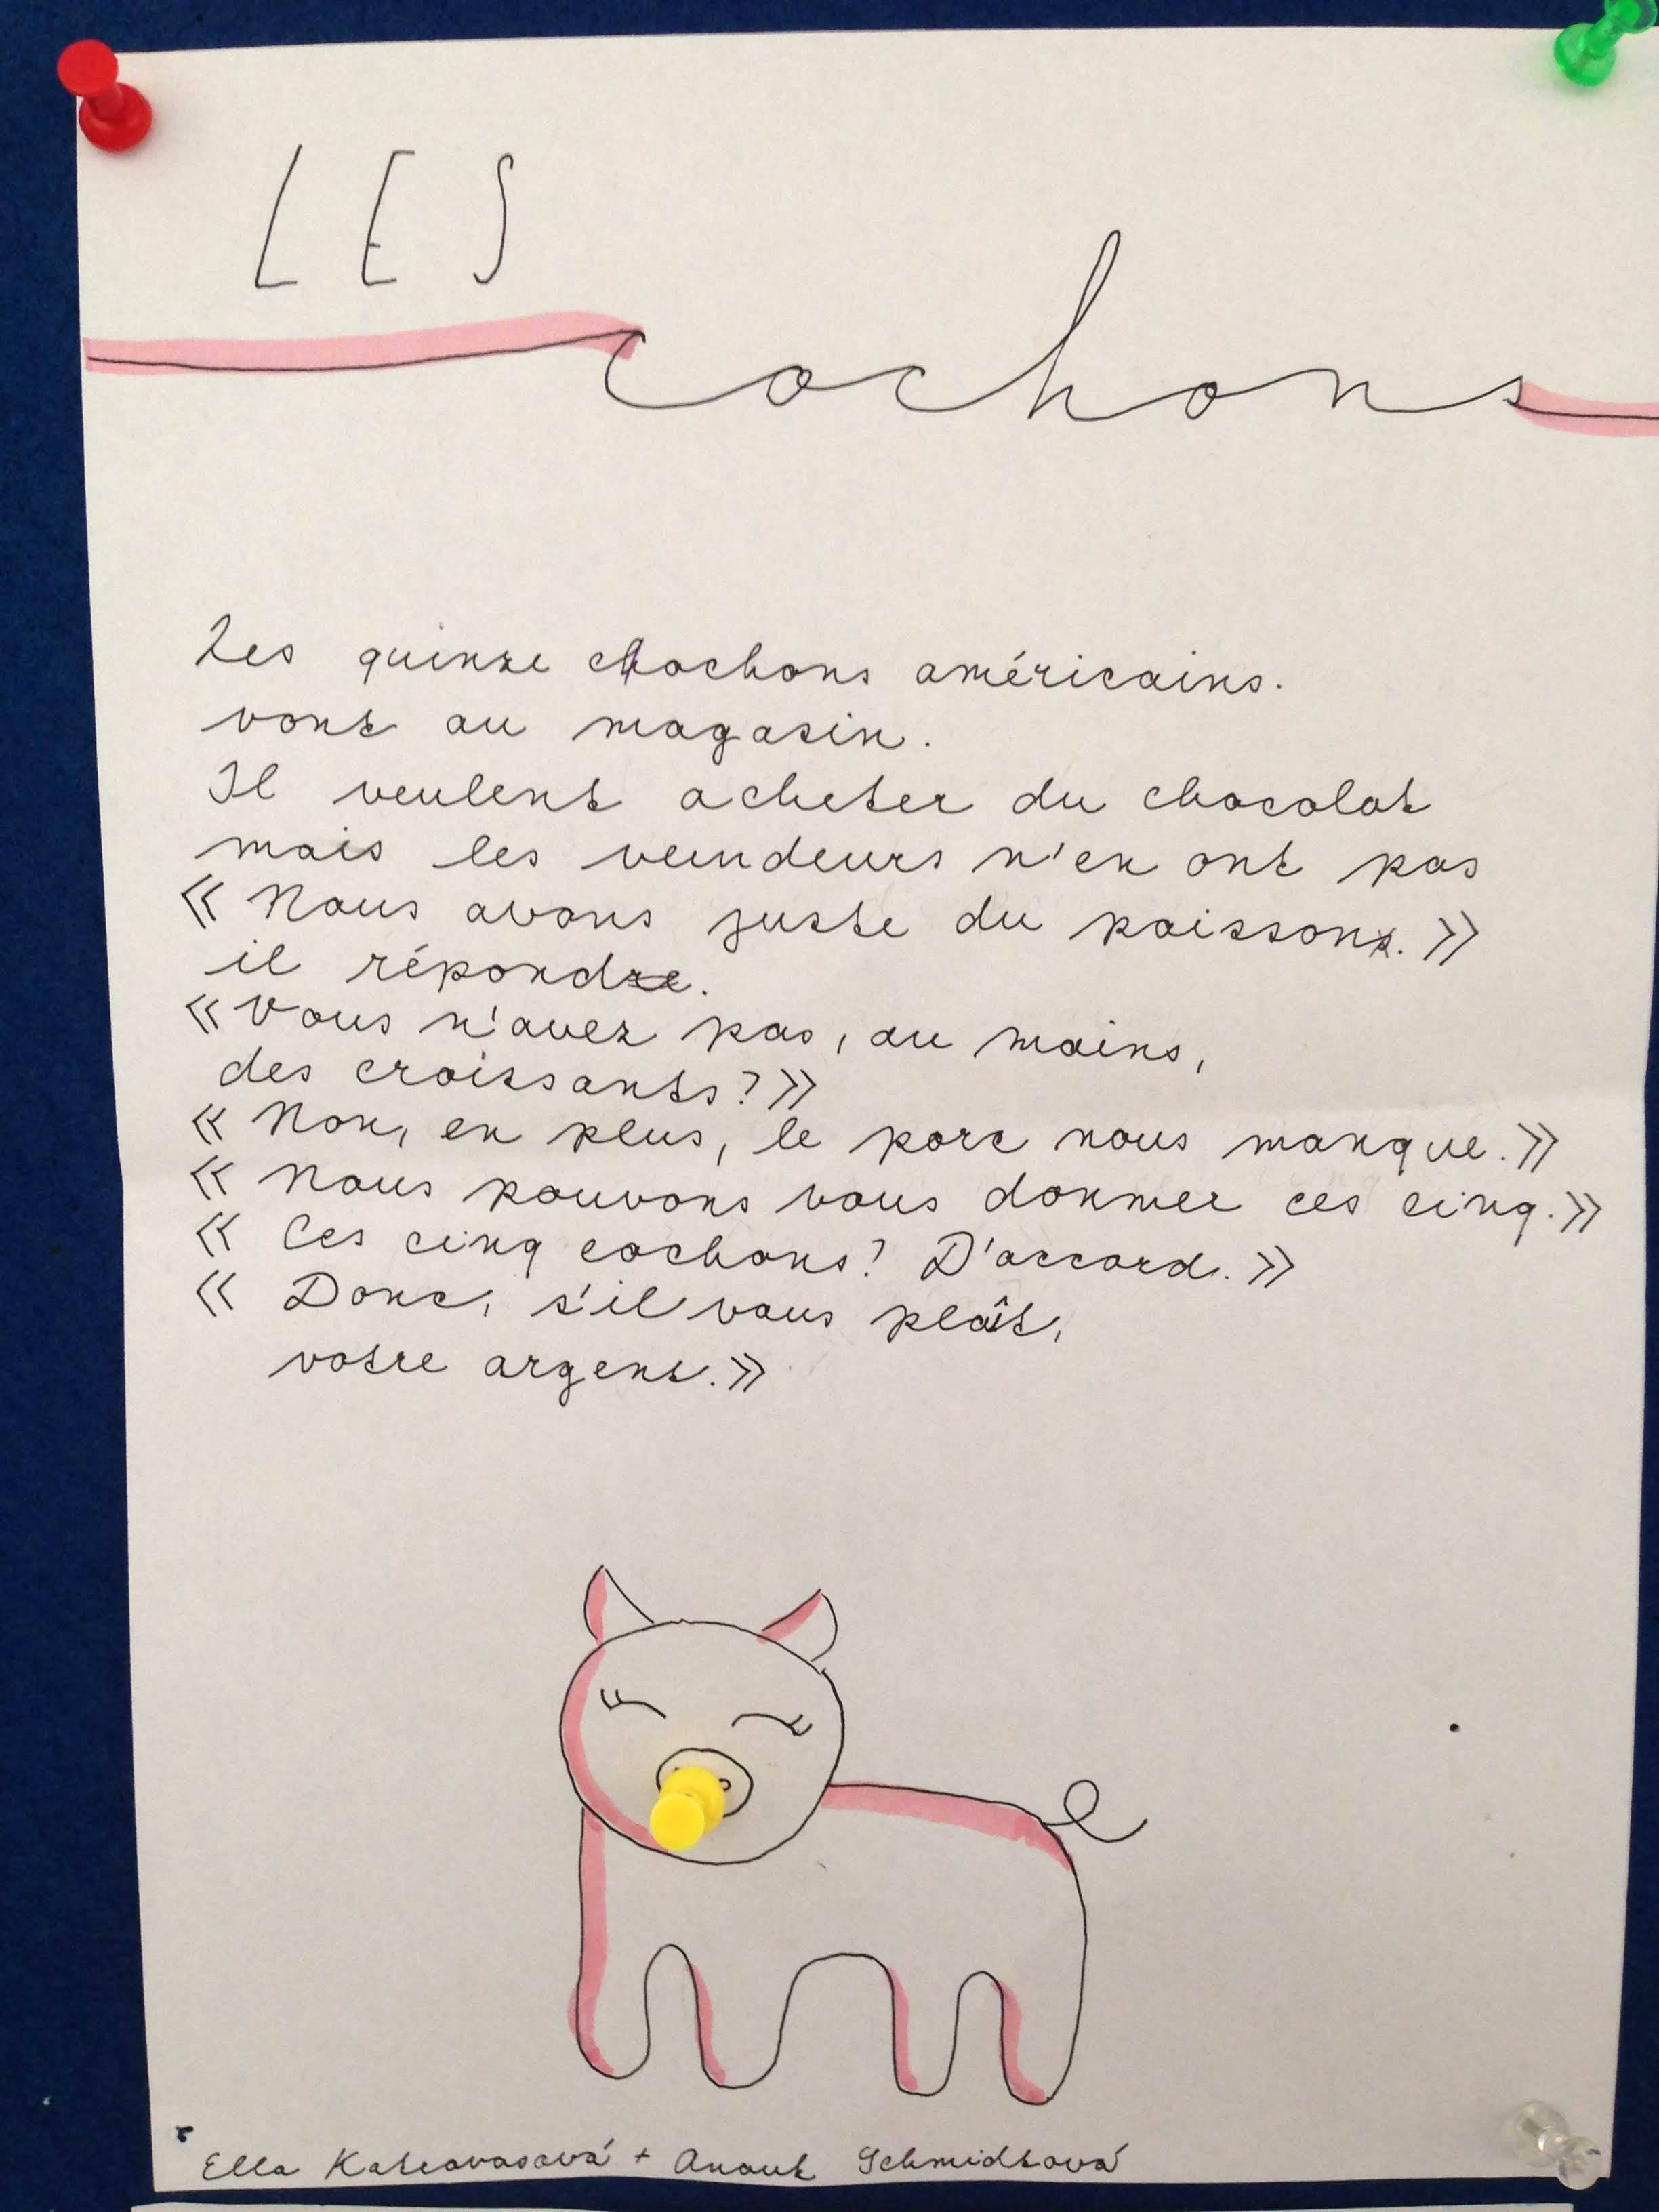 LES
cochons
Les quinze chochons américains.
vont au magasin.
Il veulent acheter du chocolat
mais les veundeurs n'en ont pas
« Nous avons juste du poisson. »
il répond.
« Vous n'avez pas, au moins,
des croissants? »
« Non, en plus, le porc nous manque. »
« Nous pouvons vous donner ces cinq. »
« Ces cinq cochons? D'accord. »
« Donc, s'il vous plaît,
votre argent. »
Ella + Anouk Schmidtová